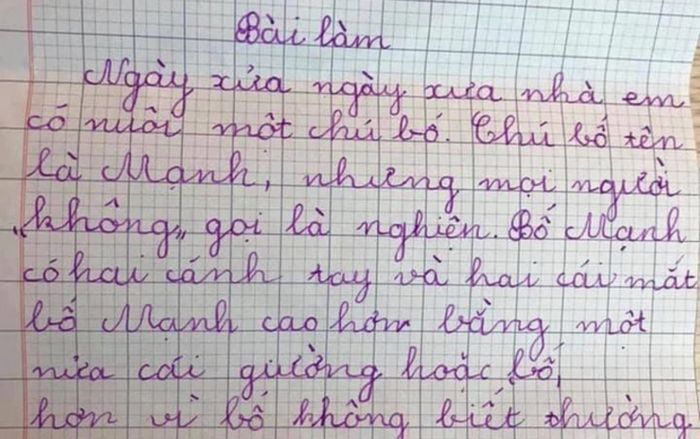 Bài làm
Ngày xửa ngày xưa nhà em
có nuôi một chú bố. Chú bố tên
là Mạnh, nhưng mọi người
"không" gọi là nghiện. Bố Mạnh
có hai cánh tay và hai cái mắt
bố Mạnh cao hơn bằng một
nửa cái giường hoặc bố,
hơn vì bố không biết thường